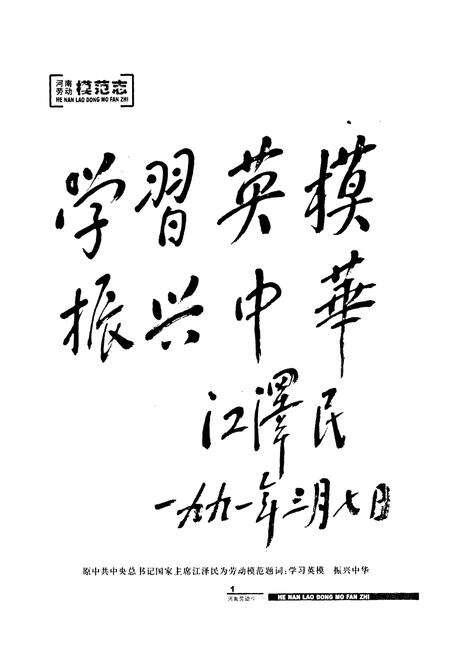 河南
劳动
模范志
HE NAN LAO DONG MO FAN ZHI
学習英模
振兴中華
江澤民
一九九一年三月七日
原中共中央总书记国家主席江泽民为劳动模范题词:学习英模 振兴中华
1
HE NAN LAO DONG MO FAN ZHI